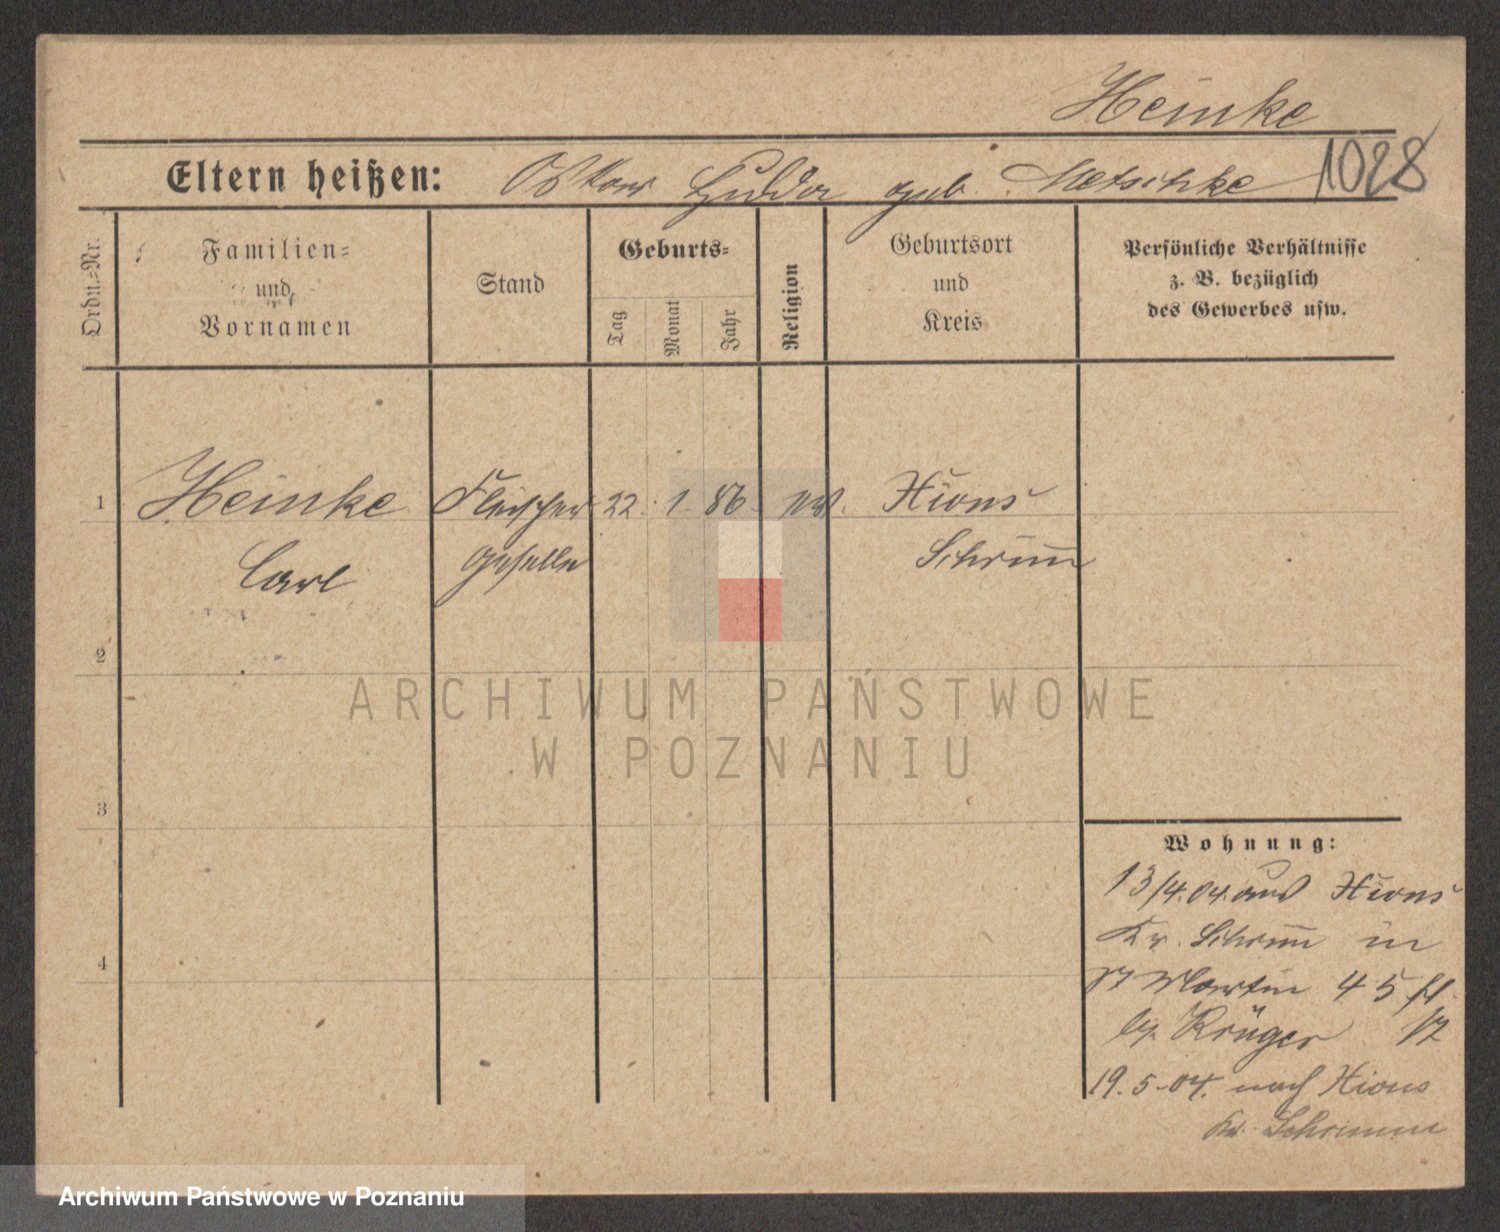 Heinke
1028
Eltern heißen: Oskar Hulda geb. Metschke
Ordn.-Nr.
Familien-
und
Vornamen
Stand
Geburts-
Tag
Monat
Jahr
Religion
Geburtsort
und
Kreis
Persönliche Verhältnisse
z. B. bezüglich
des Gewerbes usw.
1 Heinke Fleischer 22. 1. 86. ev. Xions
Carl geselle Schrim̅
2
3
4
Wohnung:
13/4.04. aus Xions
Kr. Schrim̅ in
St Martin 45
by. Krüger
19.5-04. nach Xions
Kr. Schrimm
ARCHIWUM PAŃSTWOWE
W POZNANIU
Archiwum Państwowe w Poznaniu